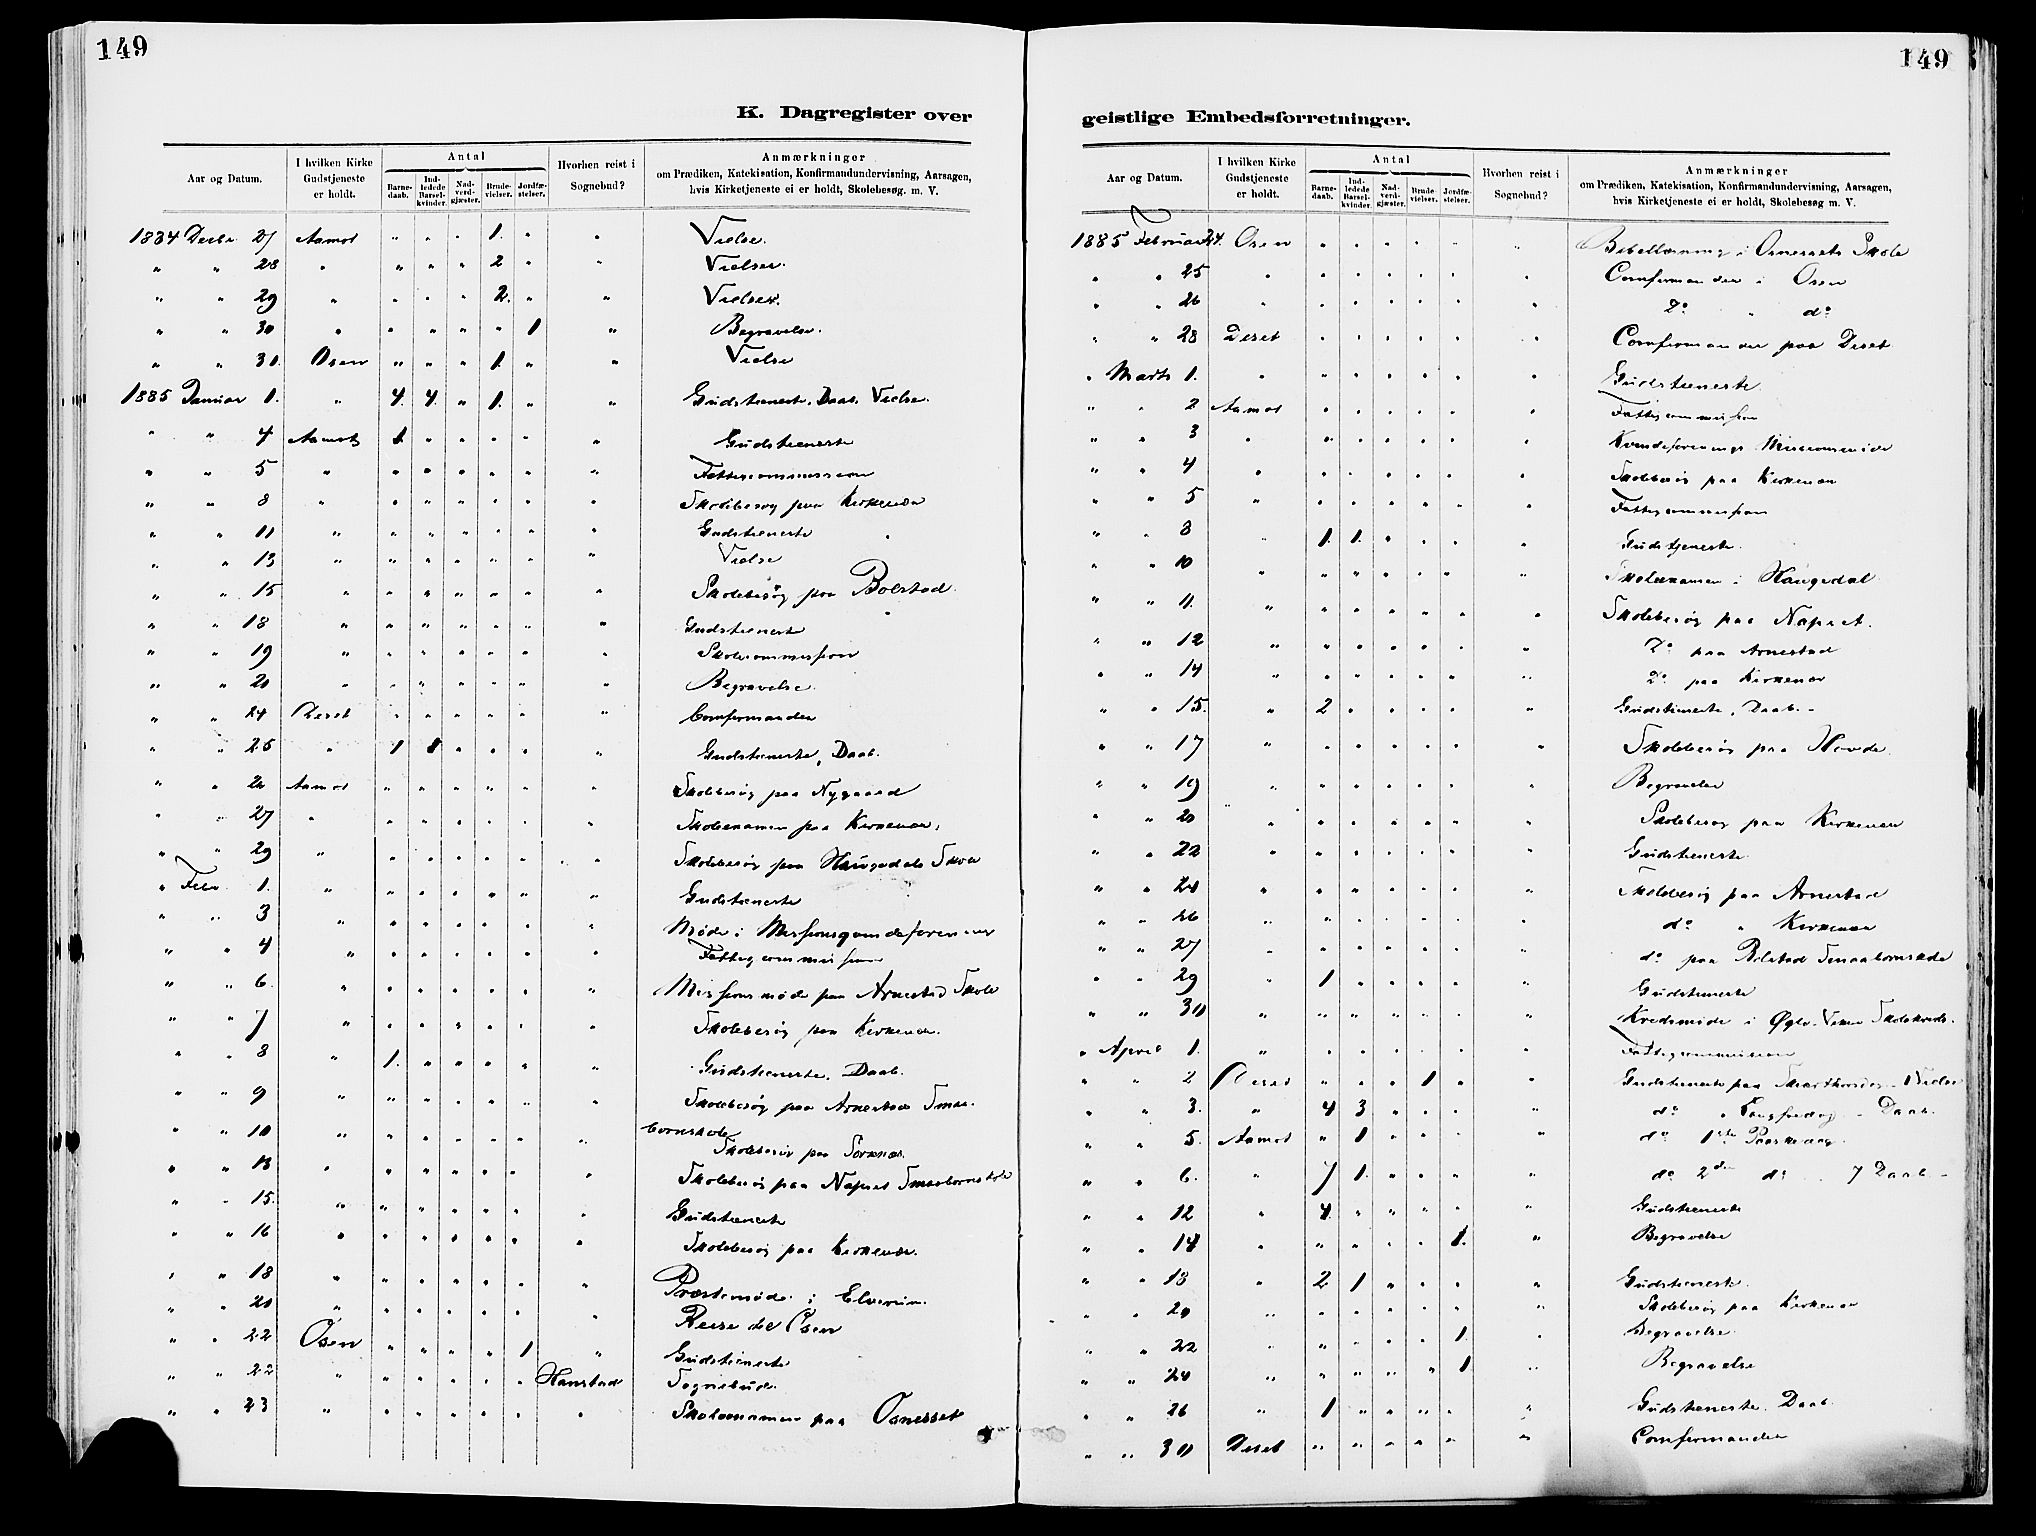 149
K. Dagregister over
Aar og Datum. I hvilken Kirke Gudstjeneste er holdt. Antal Barnedaab. Indledede Barselkvinder. Nadverdgjæster. Brudevielser. Jordfæstelser. Hvorhen reist i Sognebud? Anmærkninger om Prædiken, Katekisation, Konfirmandundervisning, Aarsagen, hvis Kirketjeneste ei er holdt, Skolebesøg. m. V.
1884 Decbr. 27 Aamot " " " 1. " " Vielse.
" " 28 " " " " 2 " " Vielser.
" " 29 " " " " 2. " " Vielser.
" " 30 " " " " " 1 " Begravelse.
" " 30. Osen " " " 1. " " Vielse
1885 Januar 1. " 4. 4. " 1. " " Gudstieneste, Daab, Vielse.
" " 4 Aamot 1. " " " " " Gudstieneste
" " 5 " " " " " " " Fattigcommission
" " 8 " " " " " " " Skolebesøg paa Kirkenær
" " 11 " " " " " " " Gudstieneste
" " 13 " " " " " " " Vielse
" " 15 " " " " " " " Skolebesøg paa Bolstad.
" " 18 " " " " " " " Gudstieneste
" " 19 " " " " " " " Skolecommission
" " 20 " " " " " " " Begravelse.
" " 24 Deset " " " " " " Comfirmander
" " 25 " 1 1 " " " " Gudstieneste, Daab.
" " 26 Aamot " " " " " " Skolebesøg paa Nygaard
" " 27 " " " " " " " Skoleexamen paa Kirkenær,
" " 29 " " " " " " " Skolebesøg paa Haugedals Skole
" Febr. 1. " " " " " " " Gudstieneste
" " 3 " " " " " " " Møde i Missionsqvindeforening
" " 4 " " " " " " " Fattigcommission
" " 6. " " " " " " " Missionsmøde paa Arnestad Skole
" " 7 " " " " " " " Skolebesøg paa Kirkenær.
" " 8 " 1. " " " " " Gudstieneste. Daab.
" " 9 " " " " " " " Skolebesøg paa Arnestad Smaa-
børnskole
" " 10 " " " " " " " Skolebesøg paa Sørnæs.
" " 13 " " " " " " " Skolebesøg paa Napset Smaabørnskole
" " 15. " " " " " " " Gudstieneste
" " 16 " " " " " " " Skolebesøg paa Kirkenær.
" " 18 " " " " " " " Præstemøde i Elverum.
" " 20 " " " " " " " Reise til Osen
" " 22 Osen " " " " 1 " Gudstieneste
" " 22 " " " " " " Hanstad Sognebud.
" " 23 " " " " " " " Skoleexamen paa Osnesset
149
geistlige Embedsforretninger.
Aar og Datum. I hvilken Kirke Gudstjeneste er holdt. Antal Barnedaab. Indledede Barselkvinder. Nadverdgjæster. Brudevielser. Jordfæstelser. Hvorhen reist i Sognebud? Anmærkninger om Prædiken, Katekisation, Konfirmandundervisning, Aarsagen, hvis Kirketjeneste ei er holdt, Skolebesøg m. V.
1885 Februar 24. Osen " " " " " " Bibellæsning i Osnessets Skole
" " 25 " " " " " " " Comfirmander i Osen
" " 26 " " " " " " " Do " do
" " 28 Deset " " " " " " Comfirmander paa Deset
" Marts 1. " " " " " " " Gudstieneste
" " 2 Aamot " " " " " " Fattigcommission
" " 3 " " " " " " " Kvindeforenings
" " 4 " " " " " " " Skolebesøg paa Kirkenær
" " 5 " " " " " " " Fattigcommission
" " 8 " 1. 1. " " " " Gudstjeneste.
" " 10 " " " " " " " Skoleexamen i Haugedal
" " 11. " " " " " " " Skolebesøg paa Napset.
" " 12 " " " " " " " Do paa Arnestad
" " 14 " " " " " " " Do paa Kirkenær
" " 15. " 2 " " " " " Gudstieneste, Daab. -
" " 17 " " " " " " " Skolebesøg paa Hovde.
" " 19 " " " " " " " Begravelse
" " 20 " " " " " " " Skolebesøg paa Kirkenær
" " 22 " " " " " " " Gudstieneste.
" " 24 " " " " " " " Skolebesøg paa Arnestad
" " 26 " " " " " " " do " Kirkenær
" " 27 " " " " " " " do paa Bolstad
" " 29 " 1 " " " " " Gudstieneste
" " 30 " " " " " " " Kredsmøde i Skolekreds.
" April 1. " " " " " " " Fattigcommission
" " 2 Deset " " " 1 " " Gudstieneste paa Skjærthorsdag - 1 Vielse
" " 3. " 4 3 " " " " do " Langfredag - Daab.
" " 5. Aamot " 1 " " " " do 1ste Paaskedag.
" " 6. " 7 1. " " " " do 2den do 7 Daab -
" " 12 " 4. " " " " " Gudstieneste
" " 14 " " " " " 1. " Begravelse
" " 18 " 2 1 " " " " Gudstieneste.
" " 20 " " " " " " " Skolebesøg paa Kirkenær
" " 22 " " " " " 1. " Begravelse.
" " 24 " " " " " 1. " Begravelse
" " 26 " 1 " " " " " Gudstieneste. Daab
" " 30 Deset " " " " " " Comfirmander